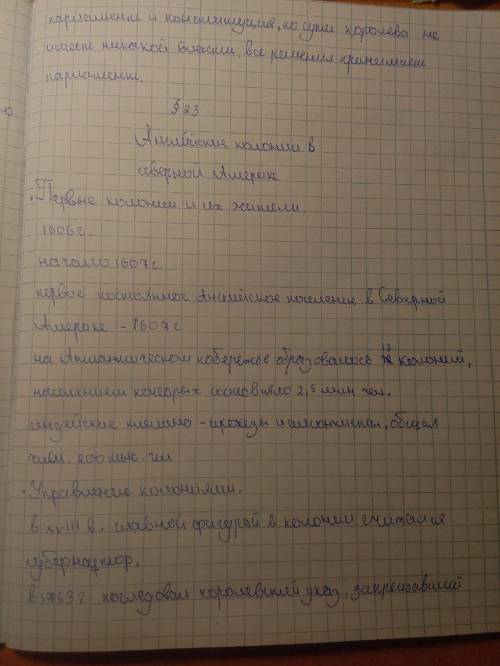 парламент и конституция, но сути королевы не
имеет никакой власти, все решения принимает
парламент.
§ 23
Английские колонии в
северной Америке
Первые колонии и их жители.
1606 г.
начало 1607 г.
первое постоянное Английское поселение в Северной
Америке - 1607 г.
на Атлантическом побережье образовалось 13 колоний,
население которых составило 2,5 млн чел.
индейские племена - ирокезы и алгонкины, общая
числ. 200 тыс. чел
Управление колониями.
в XVIII в. главной фигурой в колонии считался
губернатор.
в 1763 г. последовал королевский указ, запрещавший